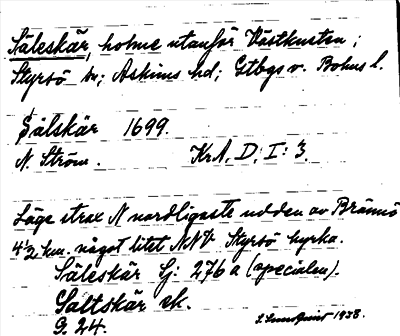 Säleskär, holme utanför Västkusten;
Styrsö sn; Askims hd; Gtbgs o. Bohus l.
Sälskär 1699.
N. Ström. KrA. D: I: 3.
Läge strax N nordligaste udden av Brännö
4½ km. något litet NNV Styrsö kyrka.
Säleskär Gj: 276 a (specialen).
Saltskär sk.
G. 24. 1938.